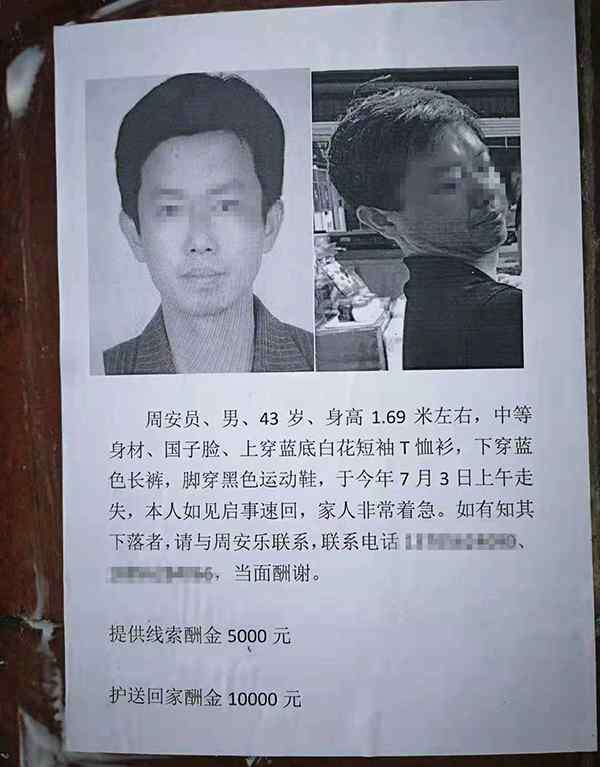 周安员、男、43 岁、身高 1.69 米左右，中等
身材、国子脸、上穿蓝底白花短袖 T 恤衫，下穿蓝
色长裤，脚穿黑色运动鞋，于今年 7 月 3 日上午走
失，本人如见启事速回，家人非常着急。如有知其
下落者，请与周安乐联系，联系电话、
，当面酬谢。
提供线索酬金 5000 元
护送回家酬金 10000 元